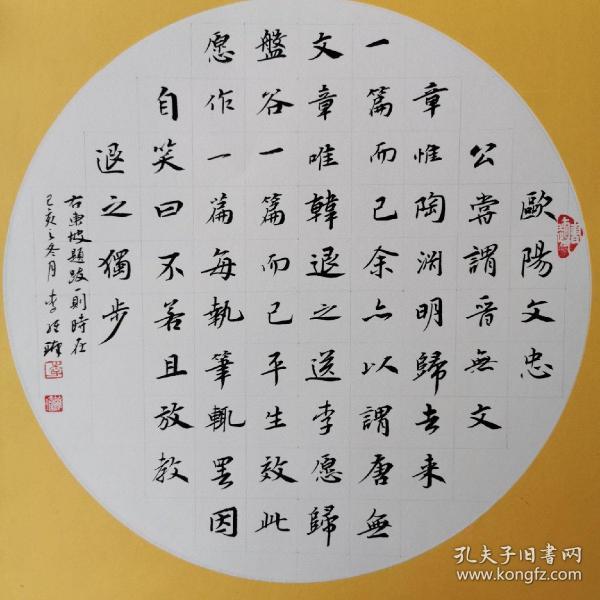 歐陽文忠
公嘗謂晉無文
章惟陶渊明歸去来
一篇而已余亦以謂唐無
文章唯韓退之送李愿歸
盤谷一篇而已平生效此
愿作一篇每執筆輒罢因
自笑曰不若且放教
退之獨步
右東坡題跋一則時在
己亥之冬月李
孔夫子旧书网
www.kongfz.com